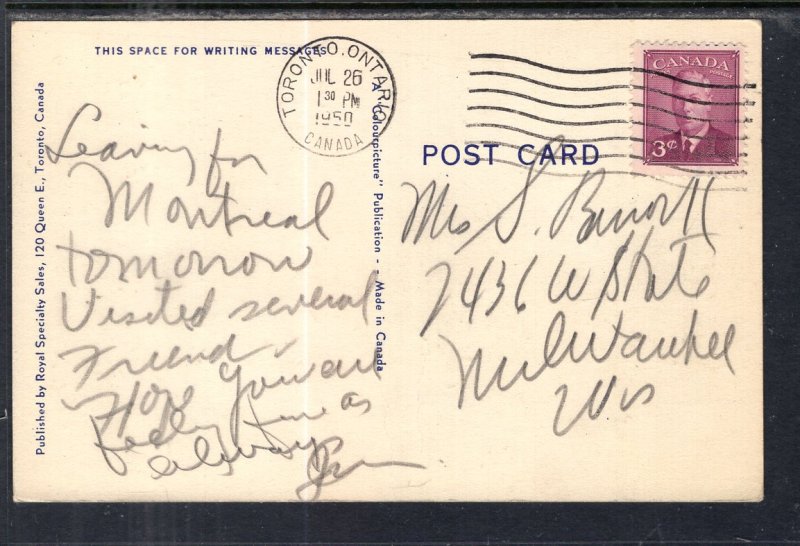 THIS SPACE FOR WRITING MESSAGES
TORONTO, ONTARIO
JUL 26
1 30 PM
1950
CANADA
CANADA
POSTES POSTAGE
3¢
Leaving for
Montreal
tomorrow
Visited several
Friend
Hope you are
feeling fine as
always
POST CARD
Mrs S.
2436 W State
Milwaukee
Wis
Published by Royal Specialty Sales, 120 Queen E., Toronto, Canada
A "Colourpicture" Publication - Made in Canada